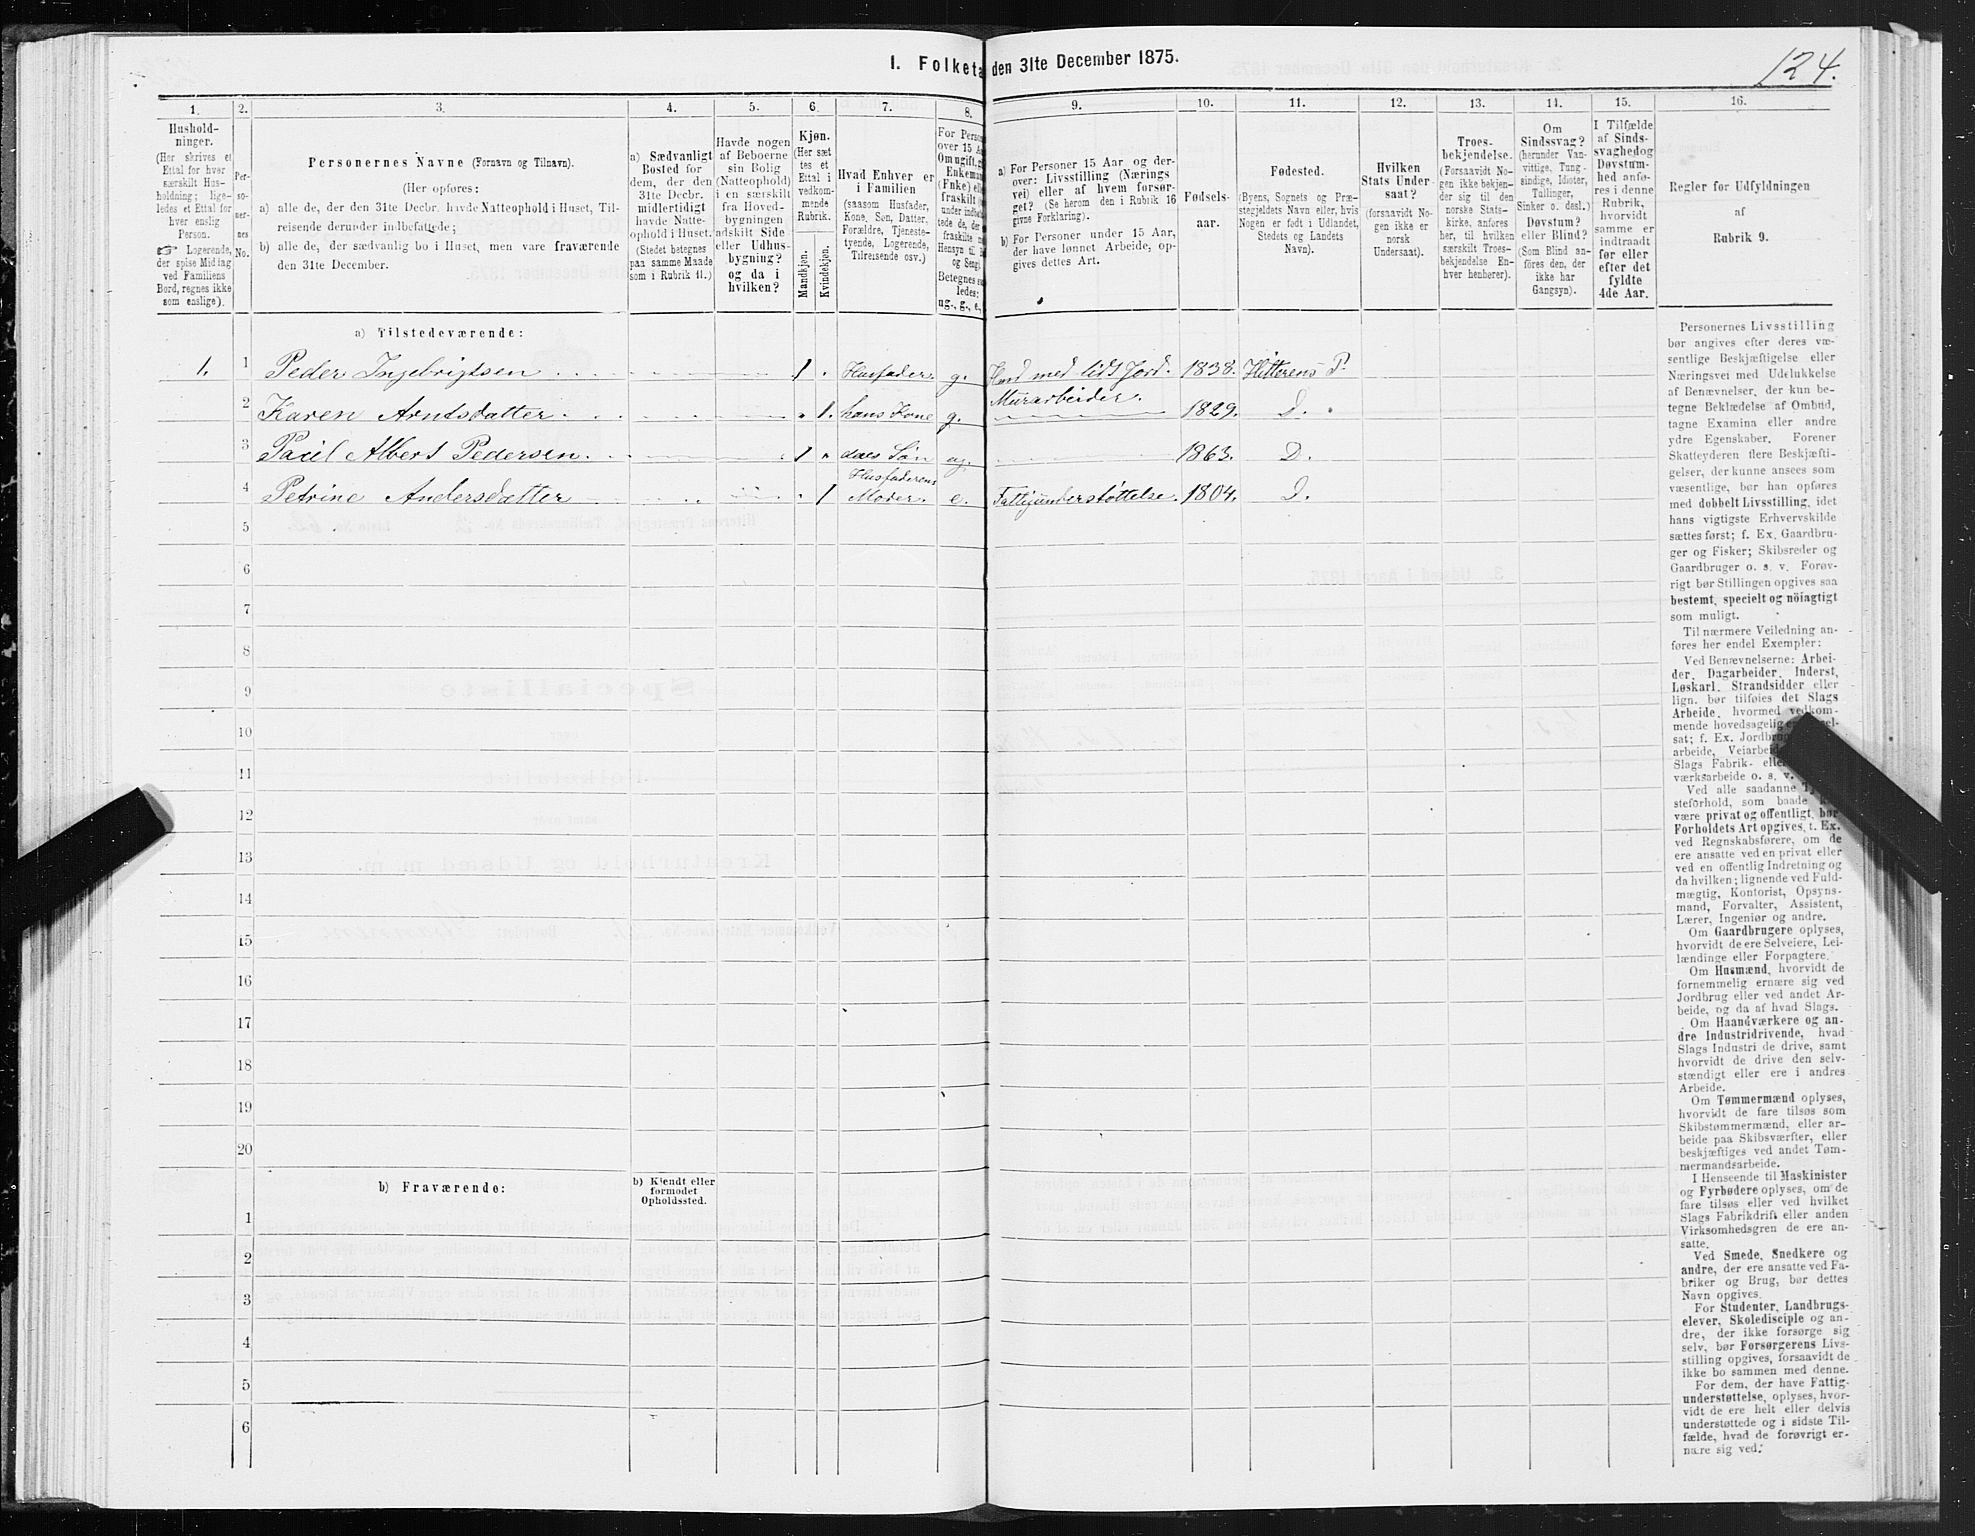 124.
I. Folketa den 31te December 1875.
1. 2. 3. 4. 5. 6. 7. 8. 9. 10. 11. 12. 13. 14. 15. 16.
Hushold-
ninger.
(Her skrives et
Ettal for hver
særskilt Hus-
holdning; lige-
ledes et Ettal for
hver enslig
Person.
☞ Logerende,
der spise Middag
ved Familiens
Bord, regnes ikke
som enslige).
Per-
so-
ner-
nes
No.
Personernes Navne (Fornavn og Tilnavn).
(Her opføres:
a) alle de, der den 31te Decbr. havde Natteophold i Huset, Til-
reisende derunder indbefattede;
b) alle de, der sædvanlig bo i Huset, men vare fraværende
den 31te December.
a) Sædvanligt
Bosted for
dem, der den
31te Decbr.
midlertidigt
havde Natte-
ophold i Huset.
(Stedet betegnes
paa samme Maade
som i Rubrik 11.)
Havde nogen
af Beboerne
sin Bolig
(Natteophold)
i en særskilt
fra Hoved-
bygningen
adskilt Side
eller Udhus-
bygning?
og da i
hvilken?
Kjøn.
(Her sæt
tes et
Ettal i
vedkom-
mende
Rubrik.
Mandkjøn.
Kvindekjøn.
Hvad Enhver er
i Familien
(saasom Husfader,
Kone, Søn, Datter,
Forældre, Tjeneste-
tyende, Logerende,
Tilreisende osv.)
For Perso
over 15 Aa
Om ugift, g
Enkema
(Enke) ell
fraskilt
under indbe
tede de, der
fraskilte
Hensyn til
og Seng).
Betegnes s
ledes:
ug., g., e.,
a) For Personer 15 Aar og der-
over: Livsstilling (Nærings
vei) eller af hvem forsør-
get? (Se herom den i Rubrik 16
givne Forklaring).
b) For Personer under 15 Aar,
der have lønnet Arbeide, op-
gives dettes Art.
Fødsels-
aar.
Fødested.
(Byens, Sognets og Præ-
stegjeldets Navn eller, hvis
Nogen er født i Udlandet,
Stedets og Landets
Navn).
Hvilken
Stats Under-
saat?
(forsaavidt No-
gen ikke er
norsk
Undersaat).
Troes-
bekjendelse.
(Forsaavidt No-
gen ikke bekjen-
der sig til den
norske Stats-
kirke, anføres
her, til hvilken
særskilt Troes-
bekjendelse En-
hver henhører).
Om
Sindssvag?
(herunder Van-
vittige, Tung-
sindige, Idioter,
Tullinger,
Sinker o. desl.)
Døvstum?
eller Blind?
(Som Blind an-
føres den, der
ikke har
Gangsyn).
I Tilfælde
af Sinds-
svaghed og
Døvstum-
hed anfø-
res i denne
Rubrik,
hvorvidt
samme er
indtraadt
før eller
efter det
fyldte
4de Aar.
Regler for Udfyldningen
af
Rubrik 9.
a) Tilstedeværende:
1. 1 Peder Ingebrigtsen 1 Husfader. g. Husd med lidt Jord. Murarbeider. 1838. Hitterens P.
2 Karen Arntsdatter 1. hans Kone g. 1829. D.
3 Paul Albert Pedersen 1 deres Søn ug. 1863. D.
4 Petrine Andersdatter 1 Husfaderens Moder. e. Fattigunderstøttelse. 1804. D.
5
6
7
8
9
10
11
12
13
14
15
16
17
18
19
20
b) Fraværende:
b) Kjendt eller
formodet
Opholdssted.
1
2
3
4
5
6
Personernes Livsstilling
bør angives efter deres væ-
sentlige Beskjæftigelse eller
Næringsvei med Udelukkelse
af Benævnelser, der kun be-
tegne Beklædelse af Ombud,
tagne Examina eller andre
ydre Egenskaber. Forener
Skatteyderen flere Beskjæfti-
gelser, der kunne ansees som
væsentlige, bør han opføres
med dobbelt Livsstilling, idet
hans vigtigste Erhvervskilde
sættes først; f. Ex. Gaardbru-
ger og Fisker; Skibsreder og
Gaardbruger o. s. v. Forøv-
rigt bør Stillingen opgives saa
bestemt, specielt og nöiagtigt
som muligt.
Til nærmere Veiledning an-
føres her endel Exempler:
Ved Benævnelserne: Arbei-
der, Dagarbeider, Inderst,
Løskarl, Strandsidder eller
lign. bør tilføies det Slags
Arbeide, hvormed vedkom-
mende hovedsagelig er
sat; f. Ex. Jordbru
arbeide, Veiarbeid
Slags Fabrik- elle
værksarbeide o. s. v.
Ved alle saadanne
steforhold, som baade
være privat og offentligt, bør
Forholdets Art opgives, t. Ex.
ved Regnskabsførere, om de
ere ansatte ved en privat eller
ved en offentlig Indretning og
da hvilken; lignende ved Fuld-
mægtig, Kontorist, Opsyns-
mand, Forvalter, Assistent,
Lærer, Ingeniør og andre.
Om Gaardbrugere oplyses,
hvorvidt de ere Selveiere, Lei-
lændinge eller Forpagtere.
Om Husmænd, hvorvidt de
fornemmelig ernære sig ved
Jordbrug eller ved andet Ar-
beide, og da af hvad Slags.
Om Haandværkere og an-
dre Industridrivende, hvad
Slags Industri de drive, samt
hvorvidt de drive den selv-
stændigt eller ere i andres
Arbeide.
Om Tømmermænd oplyses,
hvorvidt de fare tilsøs som
Skibstømmermænd, eller ar-
beide paa Skibsværfter, eller
beskjæftiges ved andet Tøm-
mermandsarbeide.
I Henseende til Maskinister
og Fyrbødere oplyses, om de
fare tilsøs eller ved hvilket
Slags Fabrikdrift eller anden
Virksomhedsgren de ere an-
satte.
Ved Smede, Snedkere og
andre, der ere ansatte ved Fa-
briker og Brug, bør dettes
Navn opgives.
For Studenter, Landbrugs-
elever, Skoledisciple og an-
dre, der ikke forsørge sig
selv, bør Forsørgerens Livs-
stilling opgives, forsaavidt de
ikke bo sammen med denne.
For dem, der have Fattig-
understøttelse, oplyses, hvor-
vidt de ere helt eller delvis
understøttede og i sidste Til-
fælde, hvad de forøvrigt er-
nære sig ved.